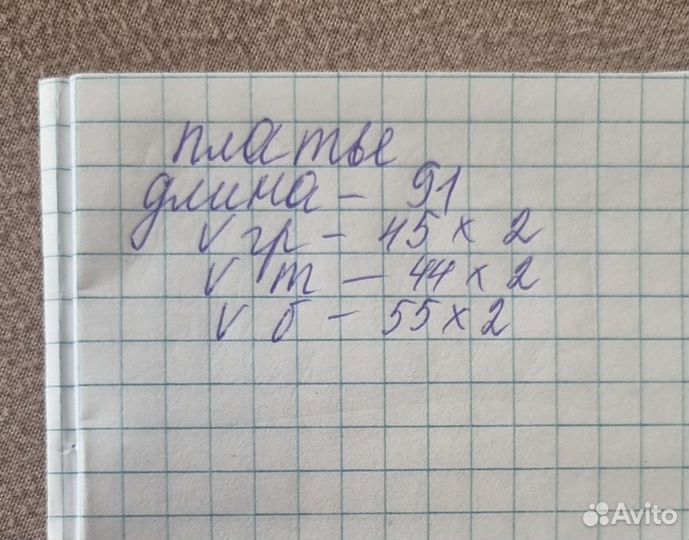 платье
длина – 91
V гр – 45 x 2
V т – 44 x 2
V б – 55 x 2
Avito